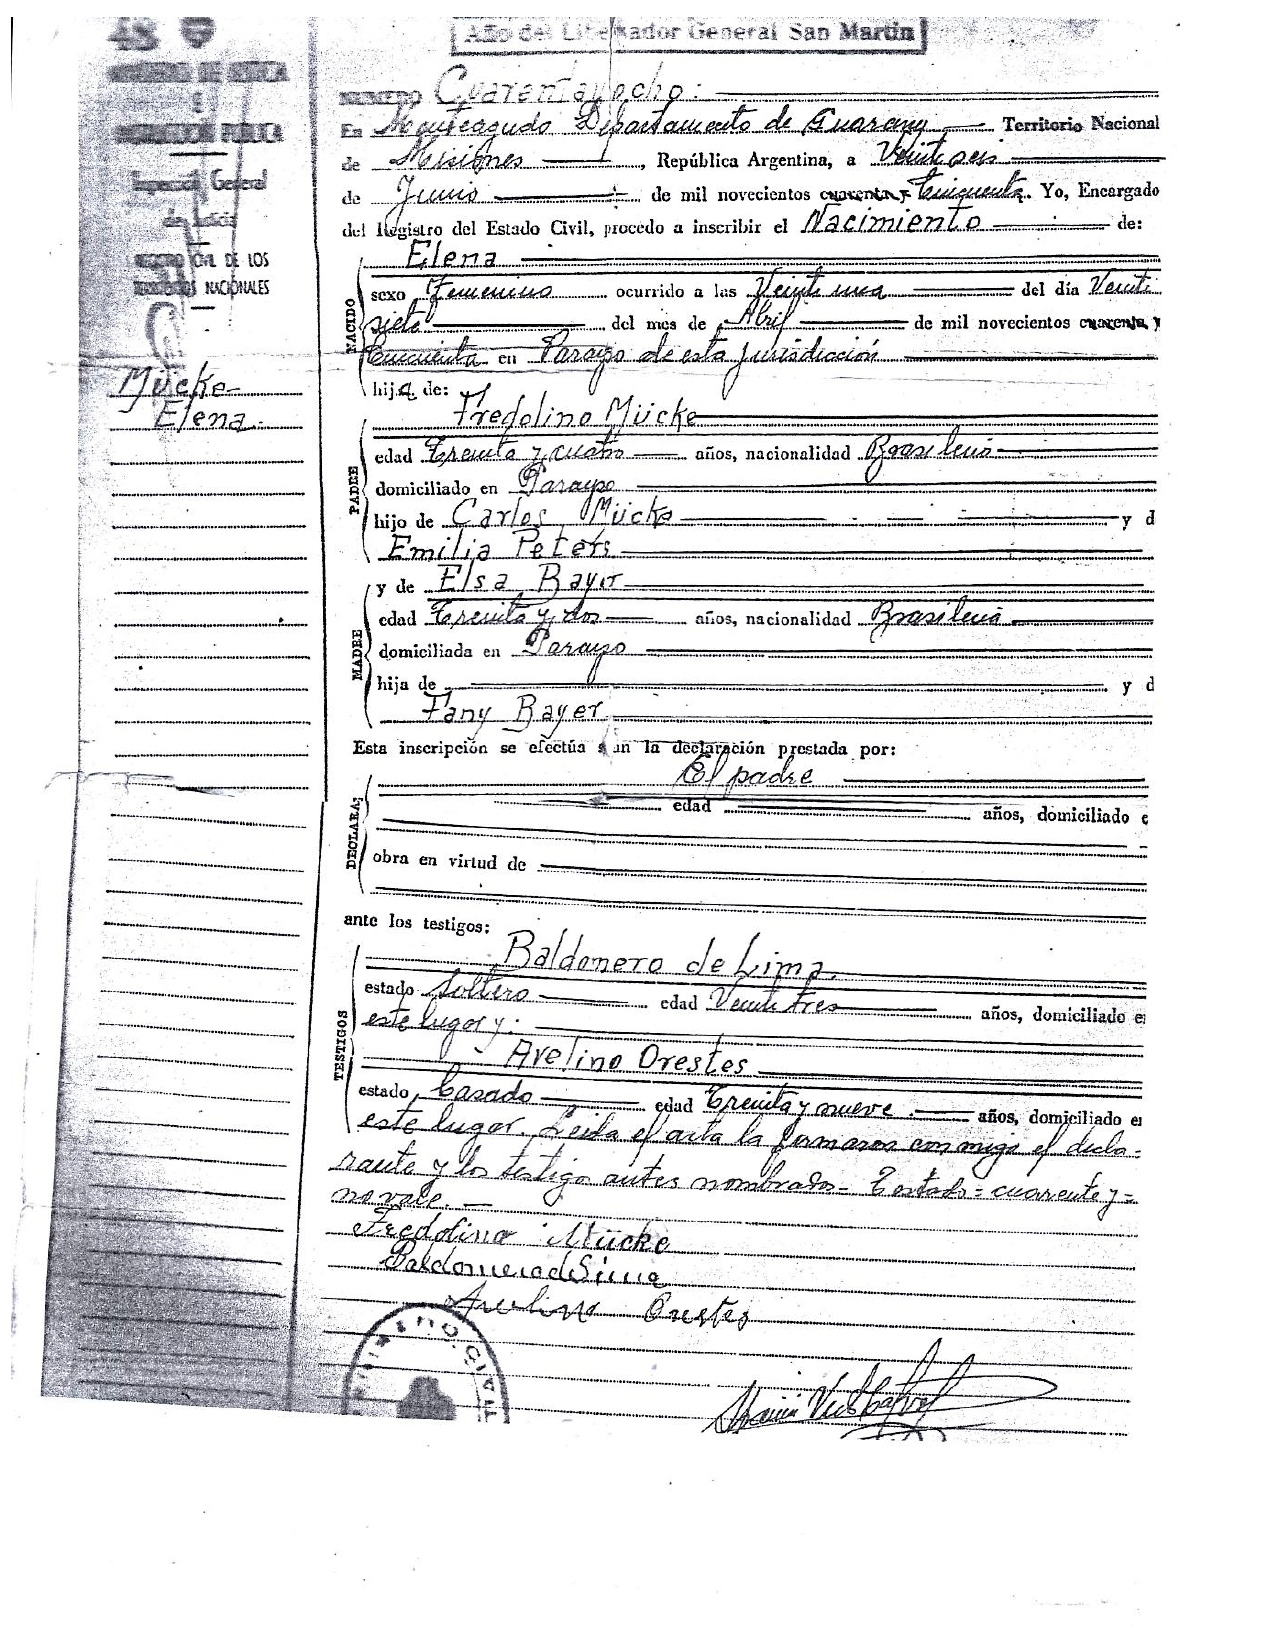 48
Año del Libertador General San Martín
MINISTERIO DE JUSTICIA
E
INSTRUCCION PUBLICA
Inspección General
de Justicia
REGISTRO CIVIL DE LOS
TERRITORIOS NACIONALES
Mücke
Elena.
NUMERO Cuarentayocho:
En Monteagudo Departamento de Guarany Territorio Nacional
de Misiones, República Argentina, a Veintiseis
de Junio de mil novecientos cuarenta y Cincuenta. Yo, Encargado
del Registro del Estado Civil, procedo a inscribir el Nacimiento de:
NACIDO
Elena
sexo Femenino ocurrido a las Veintiuna del día Veinti
siete del mes de Abril de mil novecientos cuarenta y
Cincuenta en Parayso de esta jurisdicción
hija de:
PADRE
Fredolino Mücke
edad Treinta y cuatro años, nacionalidad Brasileña
domiciliado en Parayso
hijo de Carlos Mücke y d
Emilia Peters
MADRE
y de Elsa Bayer
edad Treinta y dos años, nacionalidad Brasileña
domiciliada en Parayso
hija de y d
Fany Bayer
Esta inscripción se efectúa en la declaración prestada por:
DECLARA:
El padre
edad años, domiciliado e
obra en virtud de
ante los testigos:
TESTIGOS
Baldonero de Lima.
estado Soltero edad Veintitres años, domiciliado e
este lugar y:
Avelino Orestes
estado Casado edad Treinta y nueve. años, domiciliado e
este lugar. Leida el acta la firmaron conmigo el decla-
rante y los testigo antes nombrados- Testado = cuarenta y =
no vale. -
Fredolino Mücke
Baldomero de Lima
Avelino Orestes
REGISTRO CIVIL